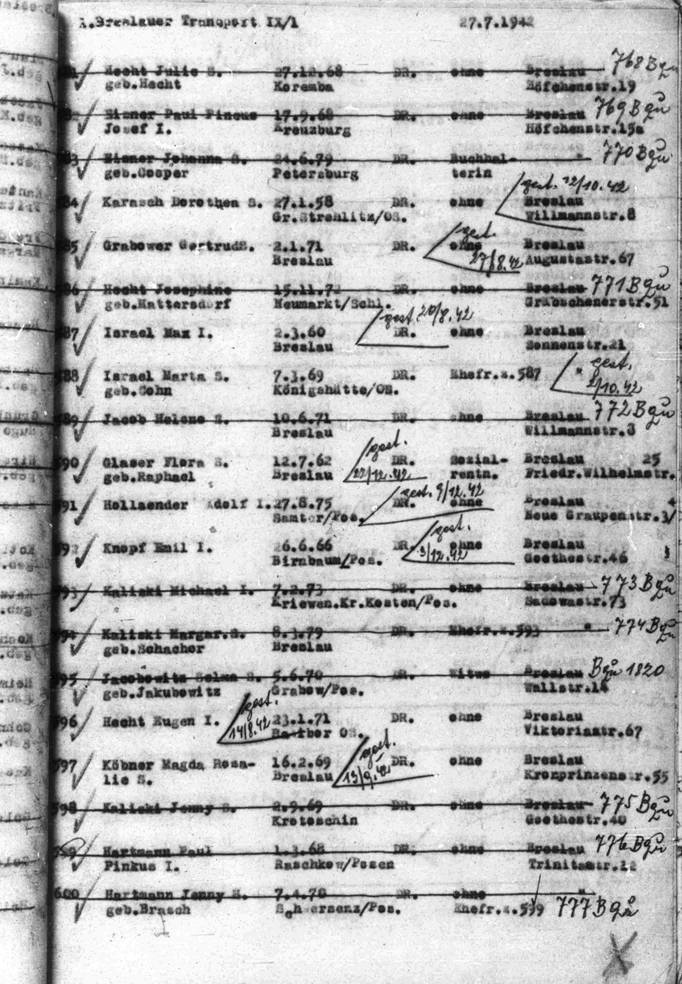 A.Breslauer Transport IX/1 27.7.1942
Hecht Julie S. 27.12.68 DR. ohne Breslau 768 Bq
geb.Hecht Koremba Höfchenstr.19
Eisner Paul Pincus 17.9.68 DR. ohne Breslau 769 Bq
Josef I. Kreuzburg Höfchenstr.15a
83 Eisner Johanna S. 24.6.79 DR. Buchhal- " 770 Bq
geb.Cosper Petersburg terin
84 Karasch Dorothea S. 27.1.58 DR. ohne gest. 12/10.42 Breslau
Gr.Strehlitz/OS. Willmannstr.8
85 Grabower Gertrud S. 2.1.71 DR. ohne gest. 27/8.42 Breslau
Breslau Augustastr.67
86 Hecht Josephine 15.11.72 DR. ohne Breslau 771 Bq
geb.Hattersdorf Neumarkt/Schl. Gräbschenerstr.51
587 Israel Max I. 2.3.60 gest. 20/8.42 DR. ohne Breslau
Breslau Sonnenstr.21
588 Israel Marta S. 7.3.69 DR. Ehefr.z.587 " gest.
geb.Cohn Königshütte/OS. 2/10.42
589 Jacob Helene S. 10.6.71 DR. ohne Breslau 772 Bq
Breslau Willmannstr.3
590 Glaser Flora S. 12.7.62 gest. DR. Sozial- Breslau 25
geb.Raphael Breslau 22/12.42 rentn. Friedr.Wilhelmstr.
591 Hollaender Adolf I. 27.8.75 DR. gest. 9/12.42 ohne Breslau 4
Samter/Pos. Neue Graupenstr.3/
592 Knopf Emil I. 26.6.66 DR. gest. ohne Breslau
Birnbaum/Pos. 3/12.42 Goethestr.46
593 Kaliski Michael I. 7.2.73 DR. ohne Breslau 773 Bq
Kriewen.Kr.Kosten/Pos. Sadowastr.73
594 Kaliski Margar.S. 8.3.79 DR. Ehefr.z.593 " 774 Bq
geb.Schachor Breslau
595 Jacobowitz Selma S. 5.6.70 DR. Witwe Breslau Bq 1820
geb.Jakubowitz Grabow/Pos. Wallstr.14
596 Hecht Eugen I. gest. 23.1.71 DR. ohne Breslau
14/8.42 Ratibor OS. Viktoriastr.67
597 Köbner Magda Rosa- 16.2.69 gest. DR. ohne Breslau
lie S. Breslau 13/9.42 Kronprinzenstr.55
598 Kaliski Jenny S. 2.9.69 DR. ohne Breslau 775 Bq
Krotoschin Goethestr.40
599 Hartmann Paul 1.3.68 DR. ohne Breslau 776 Bq
Pinkus I. Raschkow/Posen Trinitasstr.12
600 Hartmann Jenny S. 7.4.70 DR. ohne "
geb.Brasch Schwersenz/Pos. Ehefr.z.599 777 Bq